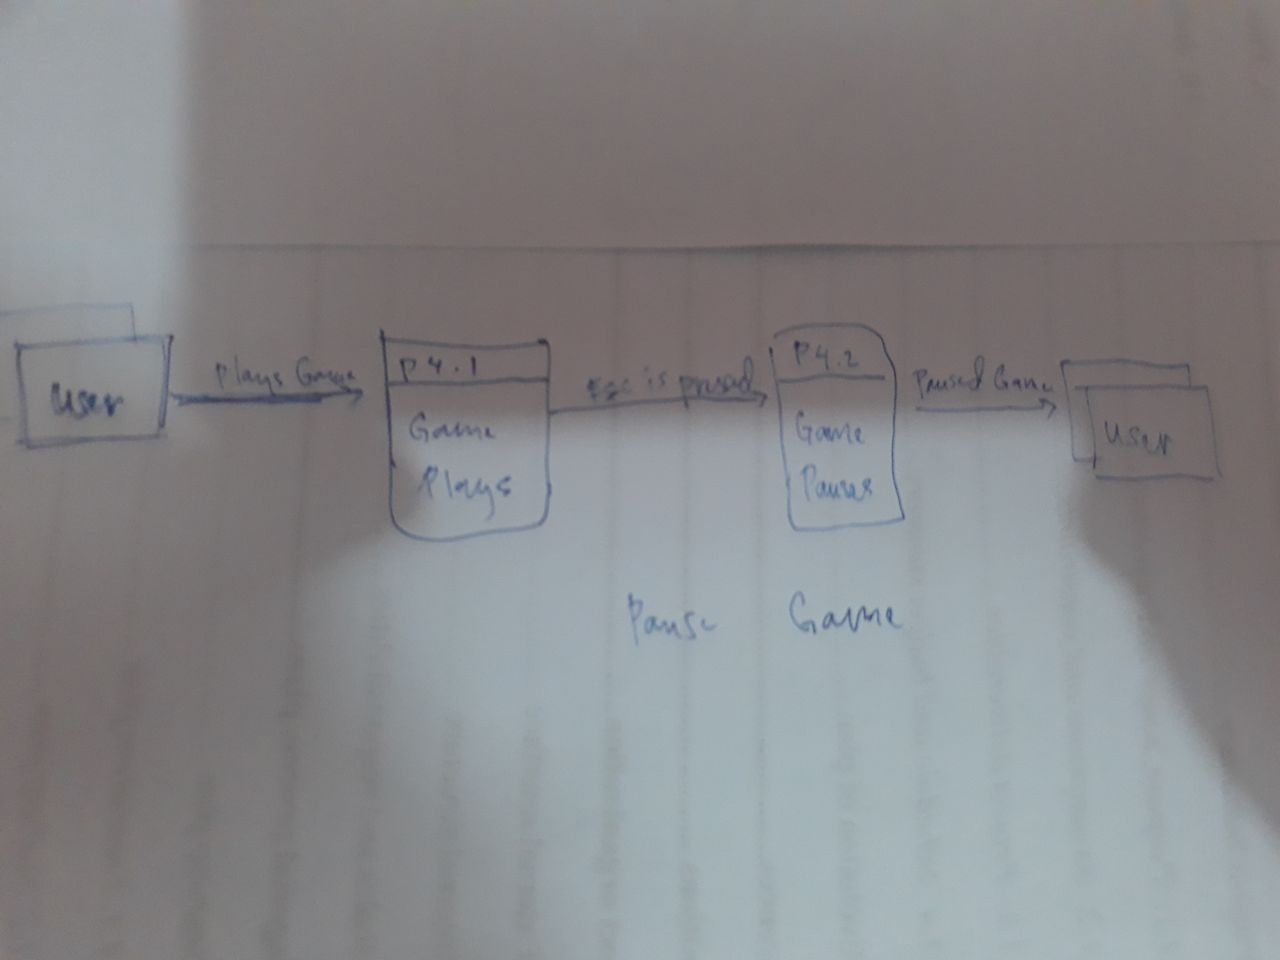 User
Plays Game
P 4.1
Game
Plays
Esc is prussed
P.4.2
Game
Pauses
Paused Game
User
Pause Game